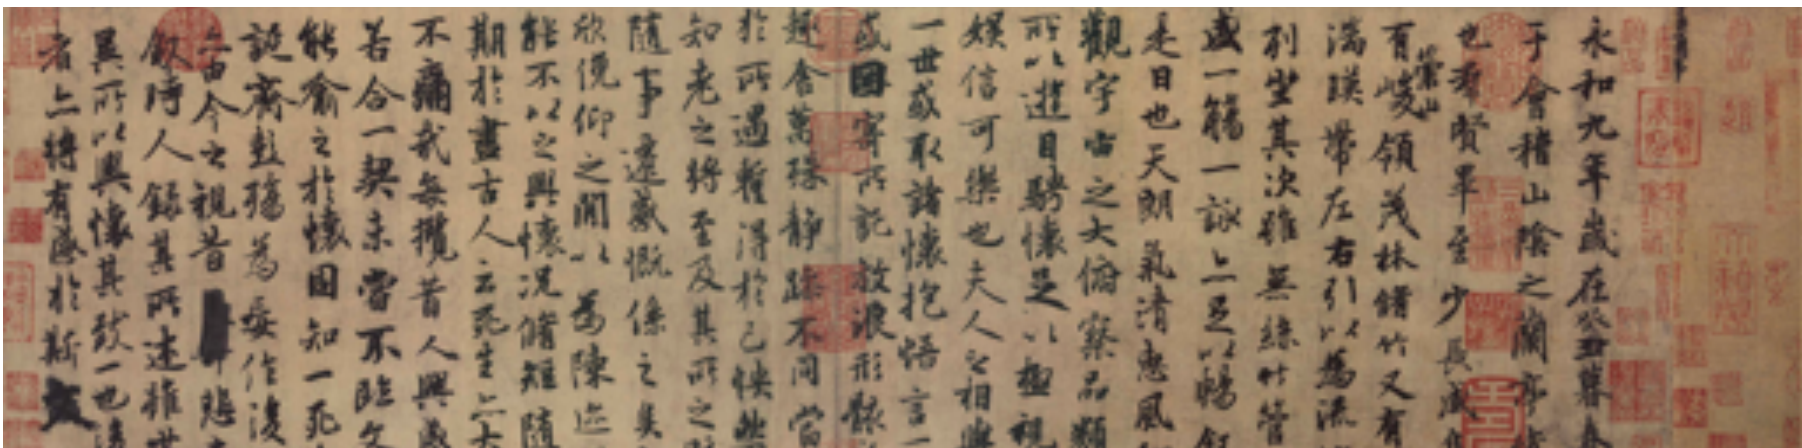 永和九年歲在癸丑暮春
于會稽山陰之蘭亭
也羣賢畢至少長咸
有崇山峻領茂林脩竹又有
湍暎帶左右引以為流
列坐其次雖無絲竹管
盛一觴一詠亦足以暢敘
是日也天朗氣清惠風
觀宇宙之大俯察品類
所以遊目騁懷足以極視
娛信可樂也夫人之相與
一世或取諸懷抱悟言一
或因寄所託放浪形骸
趣舍萬殊靜躁不同當
於所遇暫得於己怏然
知老之將至及其所之
隨事遷感慨係之矣
欣俛仰之閒以為陳迹
能不以之興懷況脩短隨
期於盡古人云死生亦大
不痛哉每攬昔人興感
若合一契未嘗不臨文
能喻之於懷固知一死
誕齊彭殤為妄作後
亦由今之視昔悲
敘時人錄其所述雖世
異所以興懷其致一也
者亦將有感於斯文